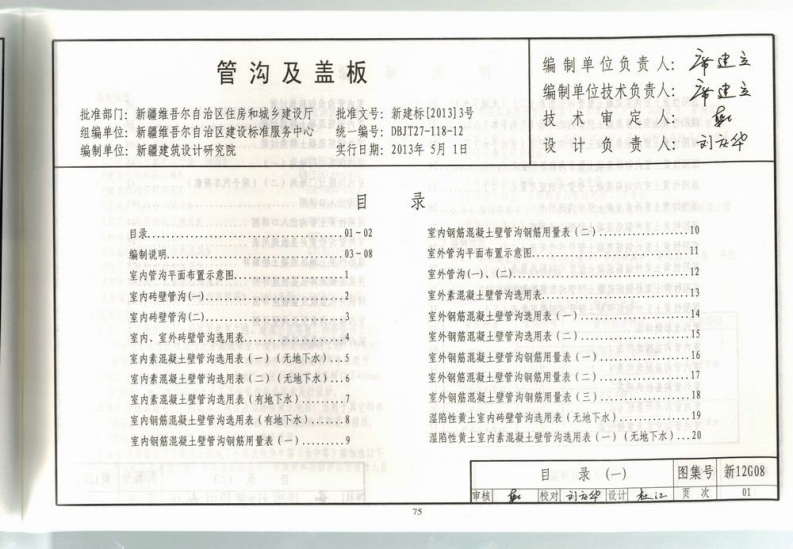 管沟及盖板
批准部门：新疆维吾尔自治区住房和城乡建设厅 批准文号：新建标[2013]3号
组编单位：新疆维吾尔自治区建设标准服务中心 统一编号：DBJT27-118-12
编制单位：新疆建筑设计研究院 实行日期：2013年5月1日
编制单位负责人：席建立
编制单位技术负责人：席建立
技术审定人：
设计负责人：刘方华
目 录
目录........................01~02
编制说明........................03~08
室内管沟平面布置示意图........................1
室内砖壁管沟(一)........................2
室内砖壁管沟(二)........................3
室内、室外砖壁管沟选用表........................4
室内素混凝土壁管沟选用表(一)(无地下水)...5
室内素混凝土壁管沟选用表(二)(无地下水)...6
室内素混凝土壁管沟选用表(有地下水)........7
室内钢筋混凝土壁管沟选用表(有地下水)......8
室内钢筋混凝土壁管沟钢筋用量表(一)........9
室内钢筋混凝土壁管沟钢筋用量表(二)........10
室外管沟平面布置示意图........................11
室外管沟(一)、(二)........................12
室外素混凝土壁管沟选用表........................13
室外钢筋混凝土壁管沟选用表(一)........14
室外钢筋混凝土壁管沟选用表(二)........15
室外钢筋混凝土壁管沟钢筋用量表(一)........16
室外钢筋混凝土壁管沟钢筋用量表(二)........17
室外钢筋混凝土壁管沟钢筋用量表(三)........18
湿陷性黄土室内砖壁管沟选用表(无地下水)........19
湿陷性黄土室内素混凝土壁管沟选用表(一)(无地下水)...20
目 录 (一) 图集号 新12G08
审核 校对 刘方华 设计 页次 01
75